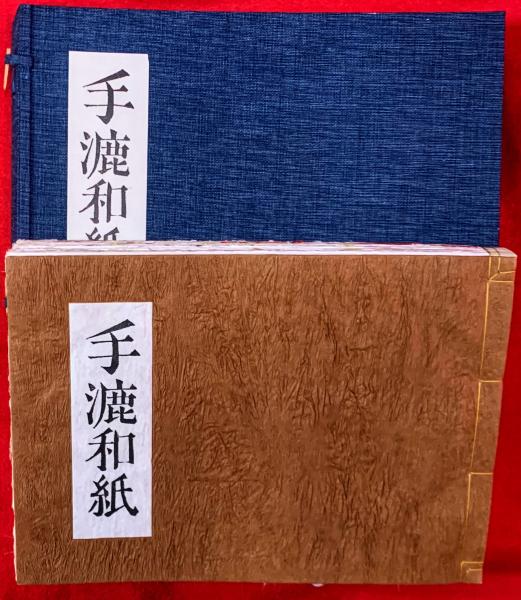 手漉和紙
手漉和紙